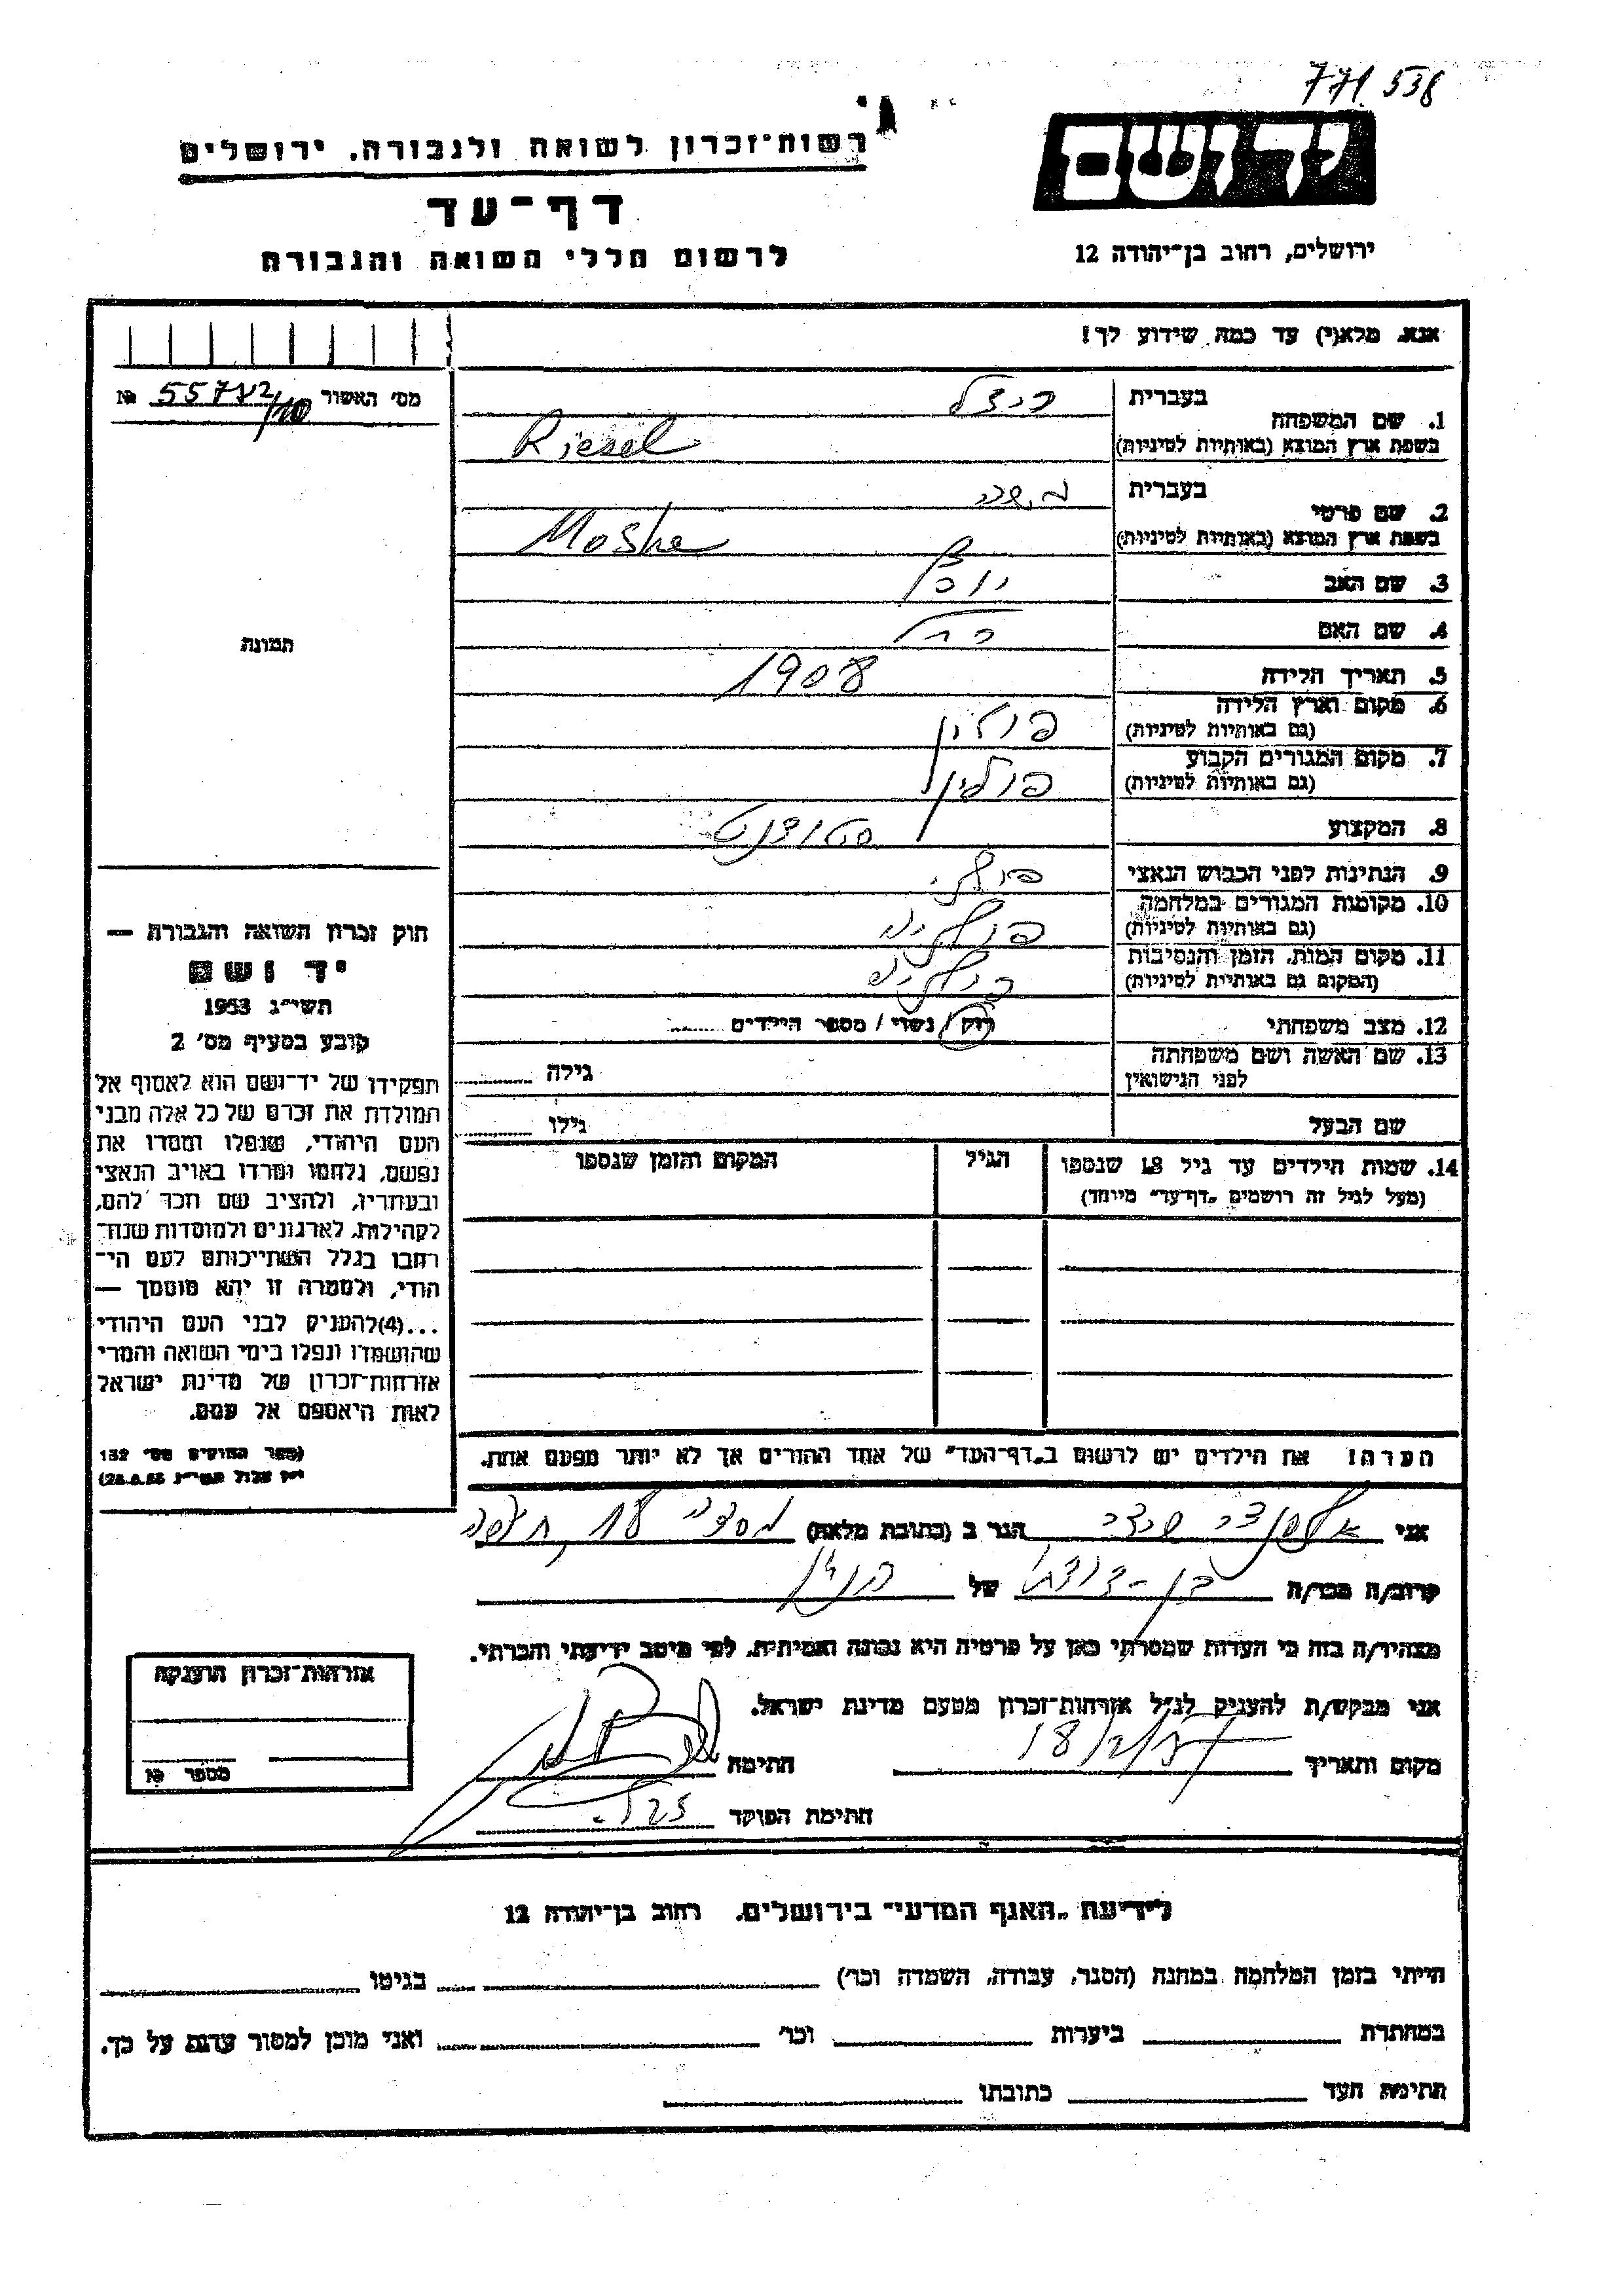 771 538
יד ושם
ירושלים, רחוב בן־יהודה 12
רשות־זכרון לשואה ולגבורה, ירושלים
דף־עד
לרשום חללי השואה והגבורה
אנא, מלא(י) עד כמה שידוע לך!
מס׳ האשור № 55772/110
1. שם המשפחה בעברית ריזל
בשפת ארץ המוצא (באותיות לטיניות) Riesel
2. שם פרטי בעברית משה
בשפת ארץ המוצא (באותיות לטיניות) Moshe
3. שם האב יוסף
4. שם האם רחל
5. תאריך הלידה 1908
6. מקום וארץ הלידה פולין
(גם באותיות לטיניות)
7. מקום המגורים הקבוע פולין
(גם באותיות לטיניות)
8. המקצוע סטודנט
9. הנתינות לפני הכבוש הנאצי פולני
10. מקומות המגורים במלחמה
(גם באותיות לטיניות)
11. מקום המות, הזמן והנסיבות
(המקום גם באותיות לטיניות)
12. מצב משפחתי רוק / נשוי / מספר הילדים
13. שם האשה ושם משפחתה גילה
לפני הנישואין
שם הבעל גילו
14. שמות הילדים עד גיל 18 שנספו הגיל המקום והזמן שנספו
(מעל לגיל זה רושמים „דף־עד״ מיוחד)
הערה! את הילדים יש לרשום ב„דף־העד״ של אחד ההורים אך לא יותר מפעם אחת.
תמונה
חוק זכרון השואה והגבורה —
יד ושם
תשי״ג 1953
קובע בסעיף מס׳ 2
תפקידו של יד־ושם הוא לאסוף אל
המולדת את זכרם של כל אלה מבני
העם היהודי, שנפלו ומסרו את
נפשם, נלחמו ומרדו באויב הנאצי
ובעוזריו, ולהציב שם וזכר להם,
לקהילות, לארגונים ולמוסדות שנח־
רחבו בגלל השתייכותם לעם הי־
הודי, ולמטרה זו יהא מוסמך —
...(4)להעניק לבני העם היהודי
שהושמדו ונפלו בימי השואה והמרי
אזרחות־זכרון של מדינת ישראל
לאות היאספם אל עמם.
(ספר החוקים מס׳ 132
אני הגר ב (כתובת מלאה) מסדה 18, חיפה
קרוב/ה מכר/ה בן-דודה של
מצהיר/ה בזה כי העדות שמסרתי כאן על פרטיה היא נכונה ואמיתית, לפי מיטב ידיעתי והכרתי.
אני מבקש/ת להעניק לנ״ל אזרחות־זכרון מטעם מדינת ישראל.
מקום ותאריך 18/2/57 חתימה
חתימת הפוקד
אזרחות־זכרון הוענקה
מספר №
לידיעת „האגף המדעי״ בירושלים, רחוב בן־יהודה 12
הייתי בזמן המלחמה במחנה (הסגר, עבודה, השמדה וכו׳) בגיטו
במחתרת ביערות וכו׳ ואני מוכן למסור עדות על כך.
חתימת העד כתובתו